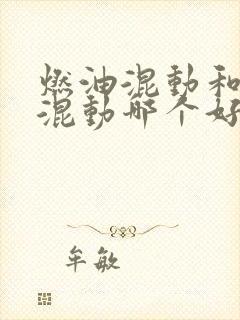 燃油混動和
混動哪个好
牟敏